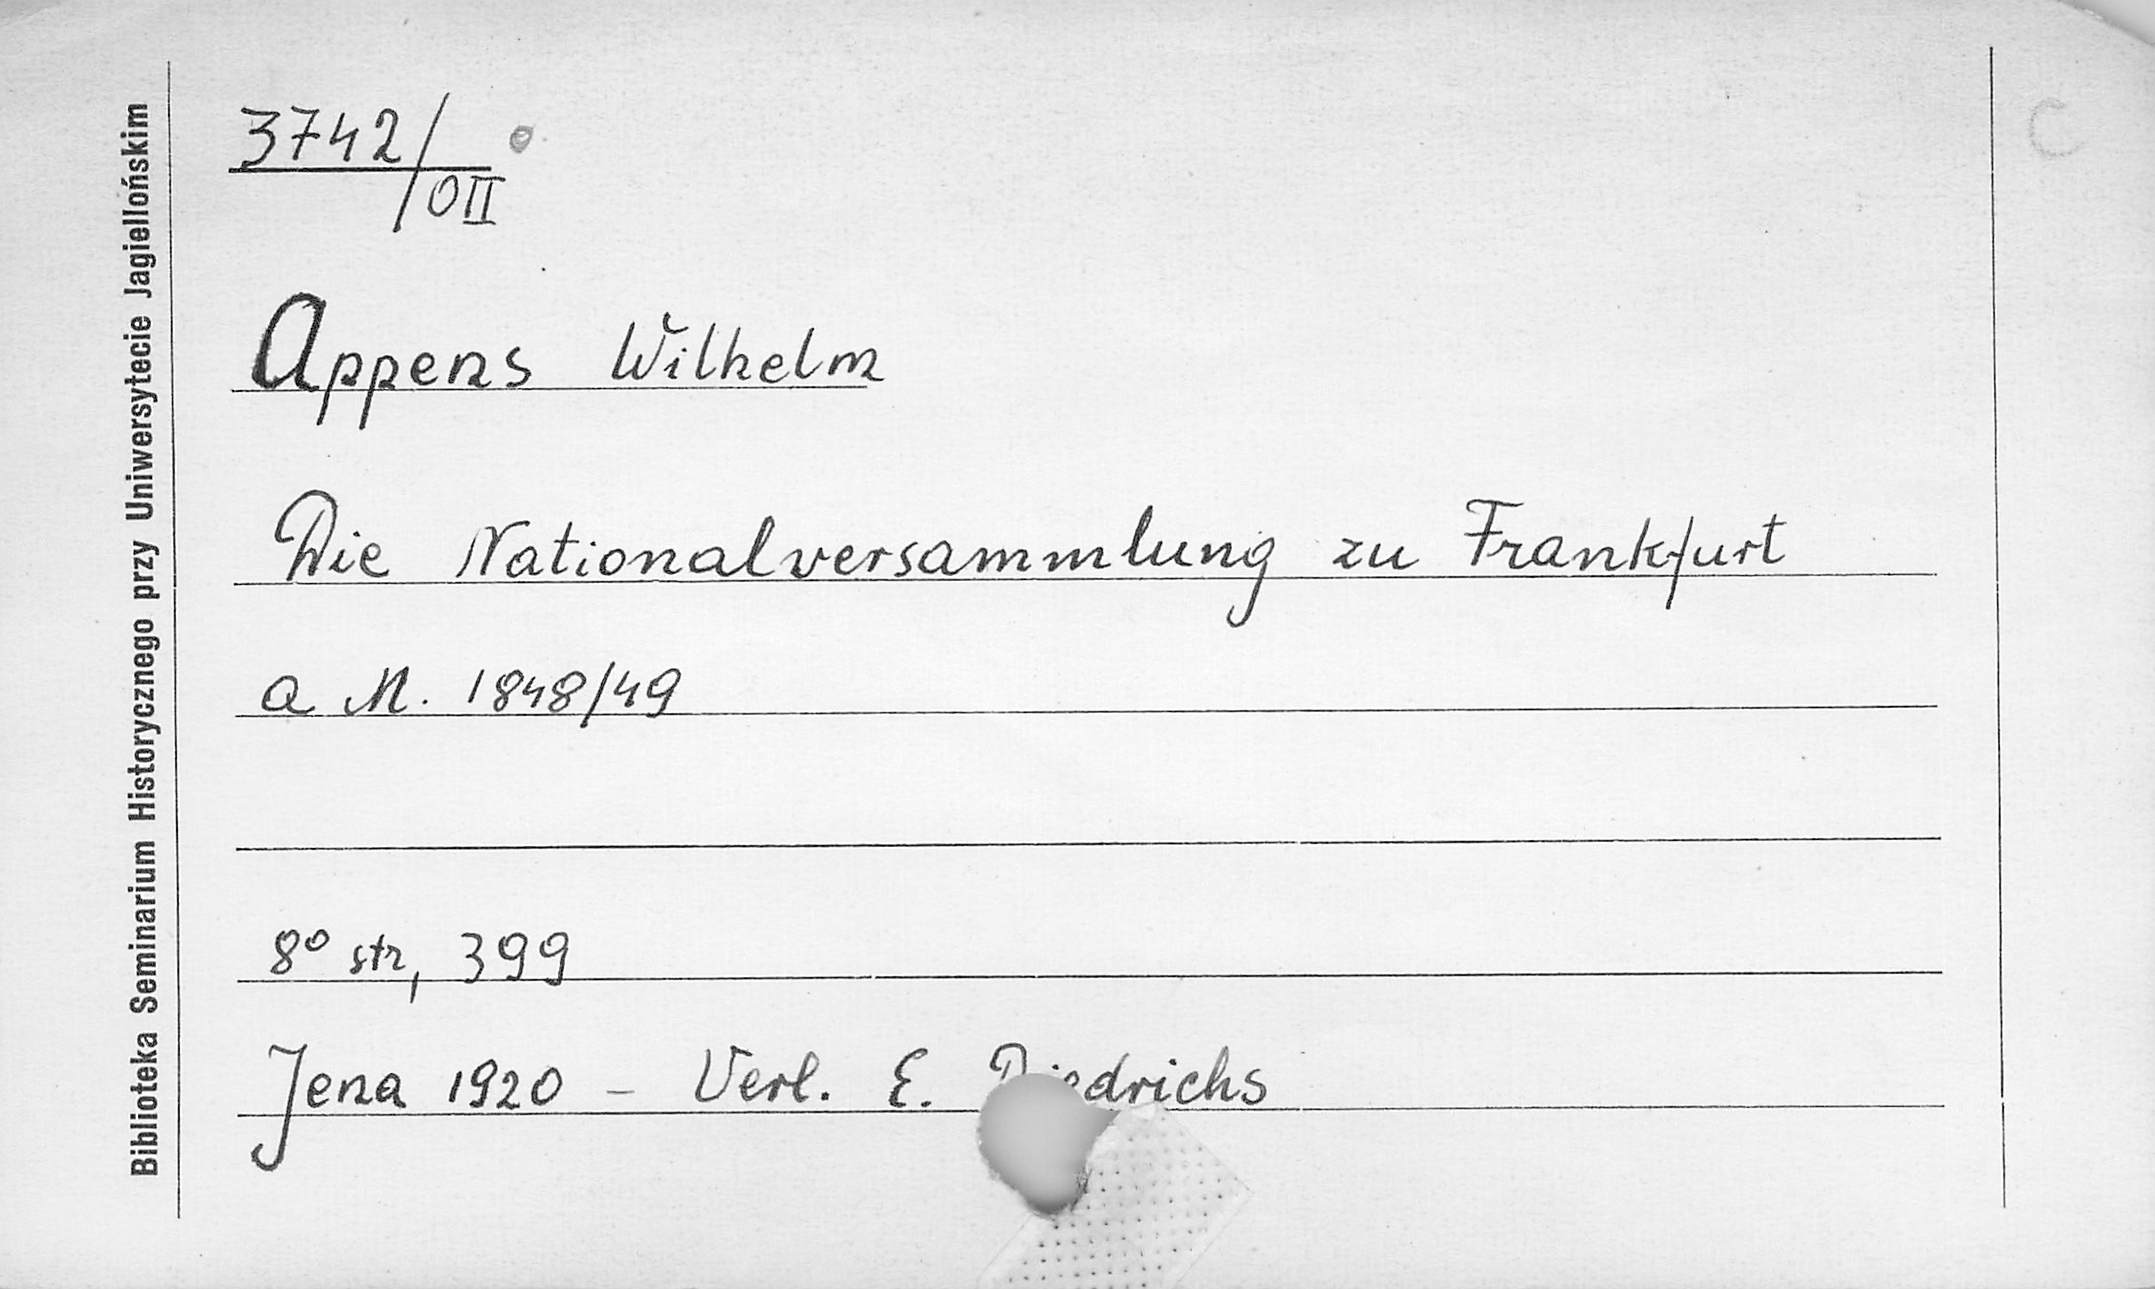 3742/OII
Appens Wilhelm
Die Nationalversammlung zu Frankfurt
a M. 1848/49
8° str, 399
Jena 1920 – Verl. E. Diedrichs
Biblioteka Seminarium Historycznego przy Uniwersytecie Jagiellońskim
C